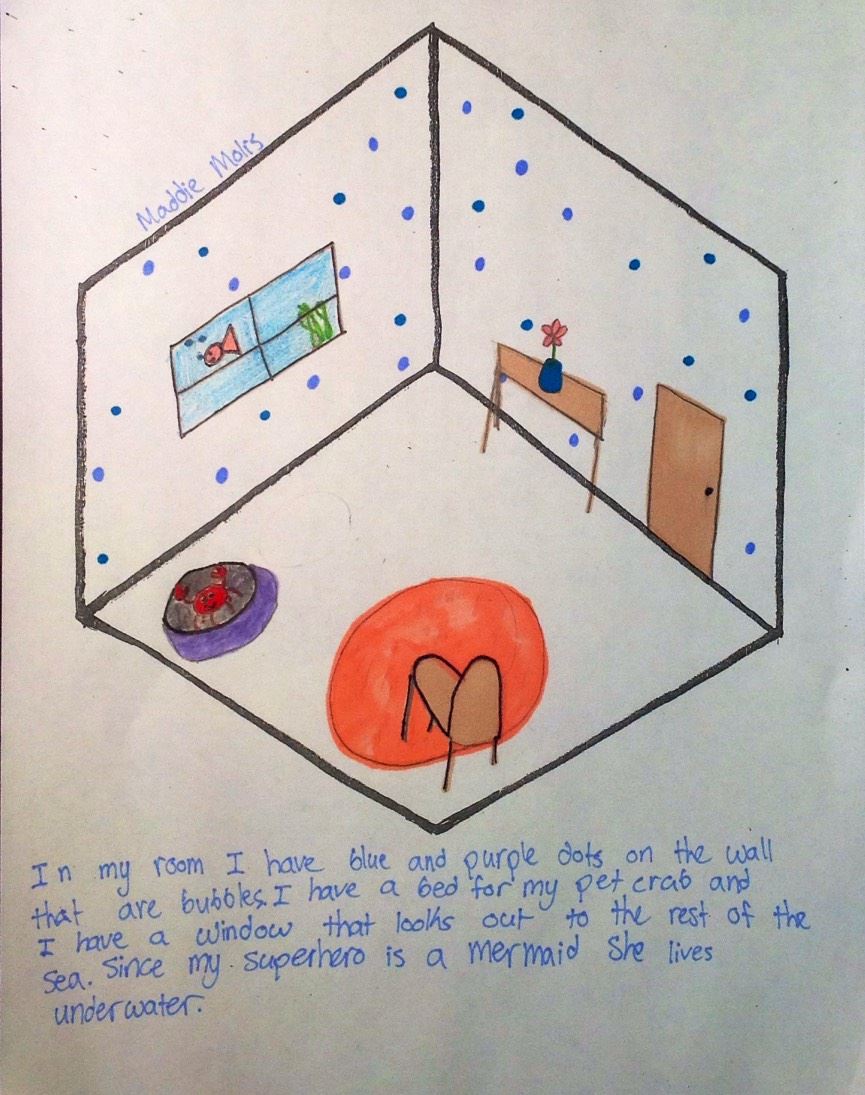 Maddie Molis
In my room I have blue and purple dots on the wall
that are bubbles. I have a bed for my pet crab and
I have a window that looks out to the rest of the
sea. Since my superhero is a mermaid she lives
underwater.